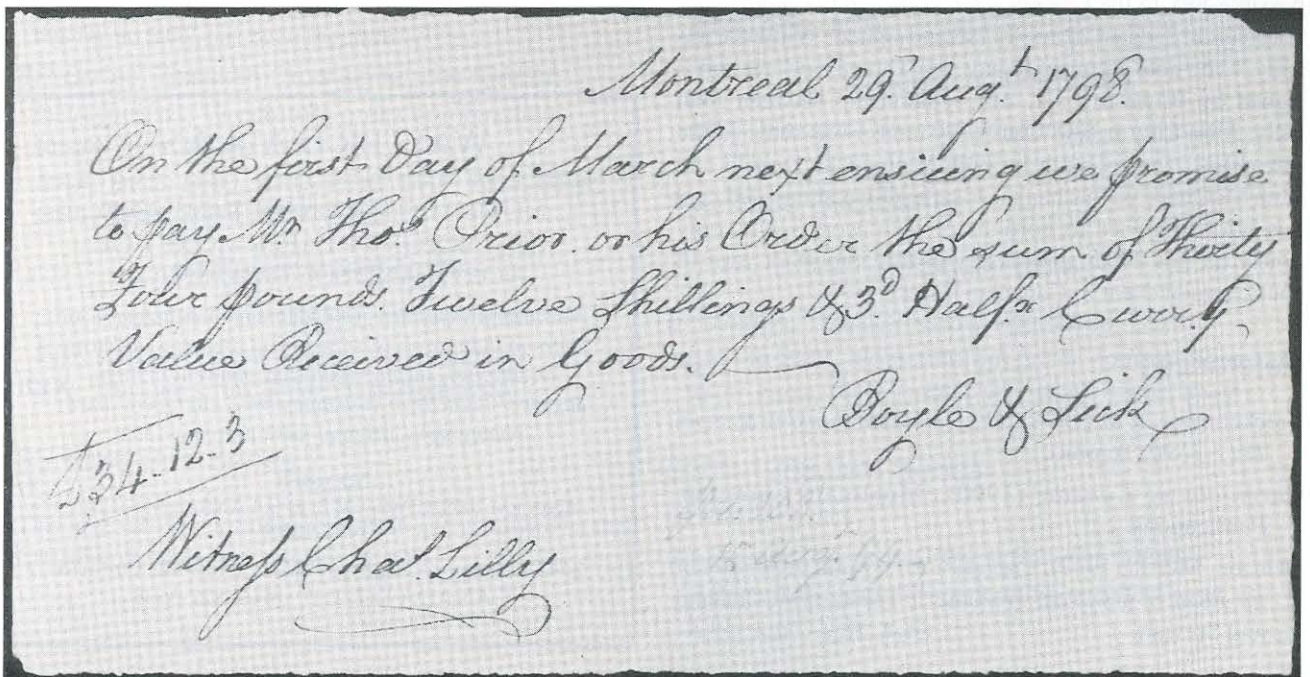 Montreal 29 Augt. 1798.
On the first Day of March next ensuing we promise
to pay Mr. Thos. Prior. or his Order the sum of Thirty
Four pounds. Twelve Shillings & 3d. Halfx Curry.
Value Received in Goods.
Boyle & Lick
£34-12-3
Witness Chas. Lilly